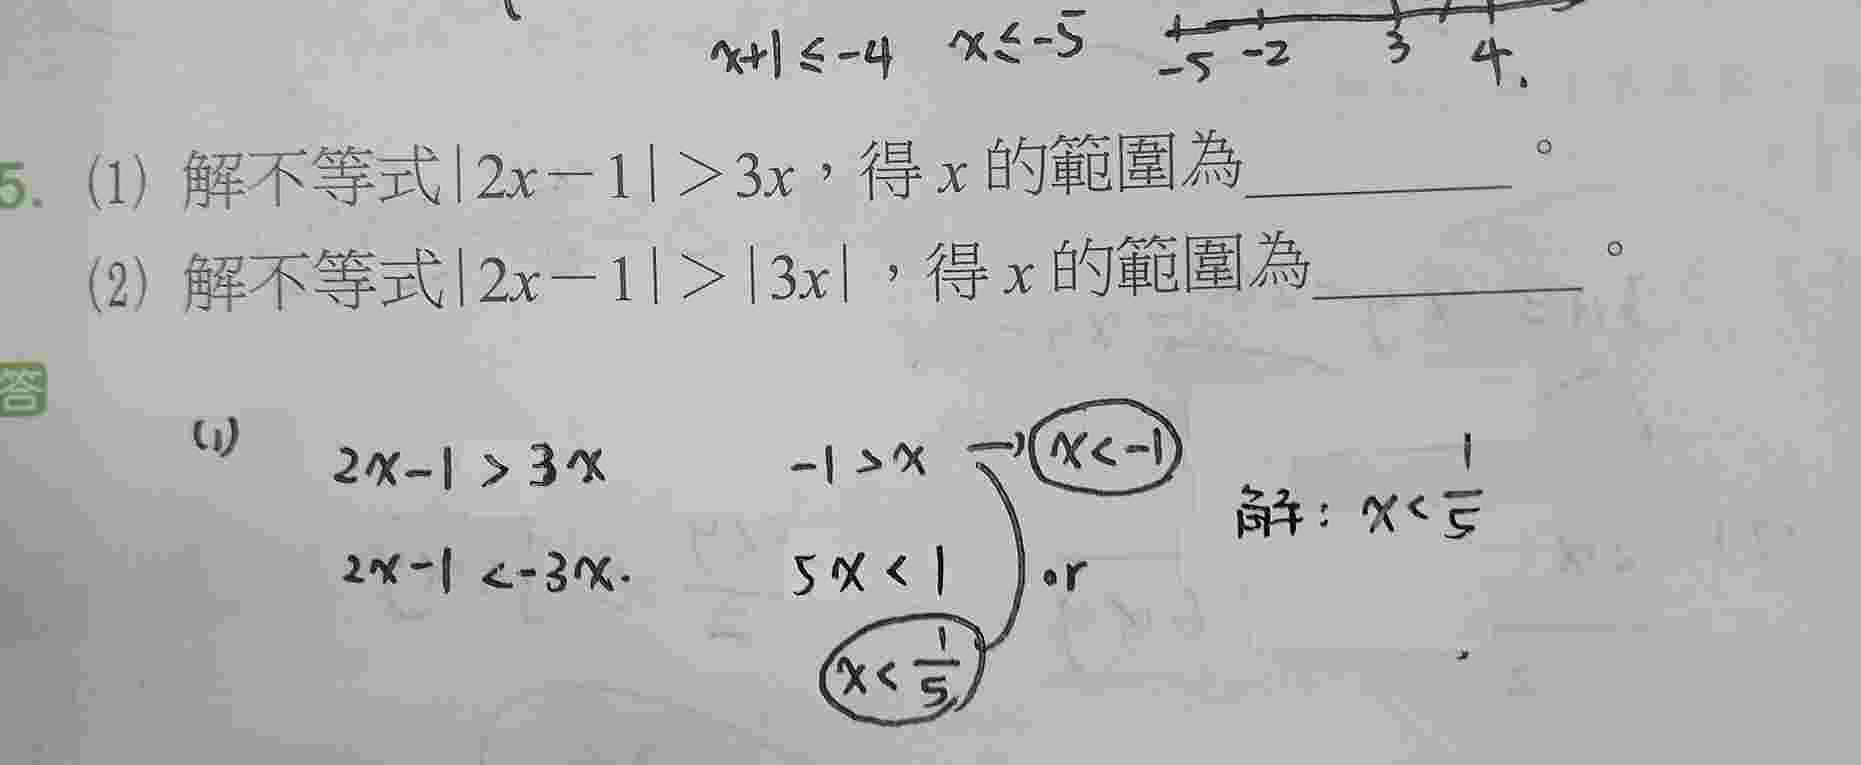 x+1≤-4 x≤-5 -5 -2 3 4.
5. (1) 解不等式|2x-1|>3x,得 x 的範圍為________。
(2) 解不等式|2x-1|>|3x|,得 x 的範圍為________。
答
(1)
2x-1 > 3x -1 > x → x<-1
解: x< 1/5
2x-1 <-3x. 5x < 1 or
x< 1/5